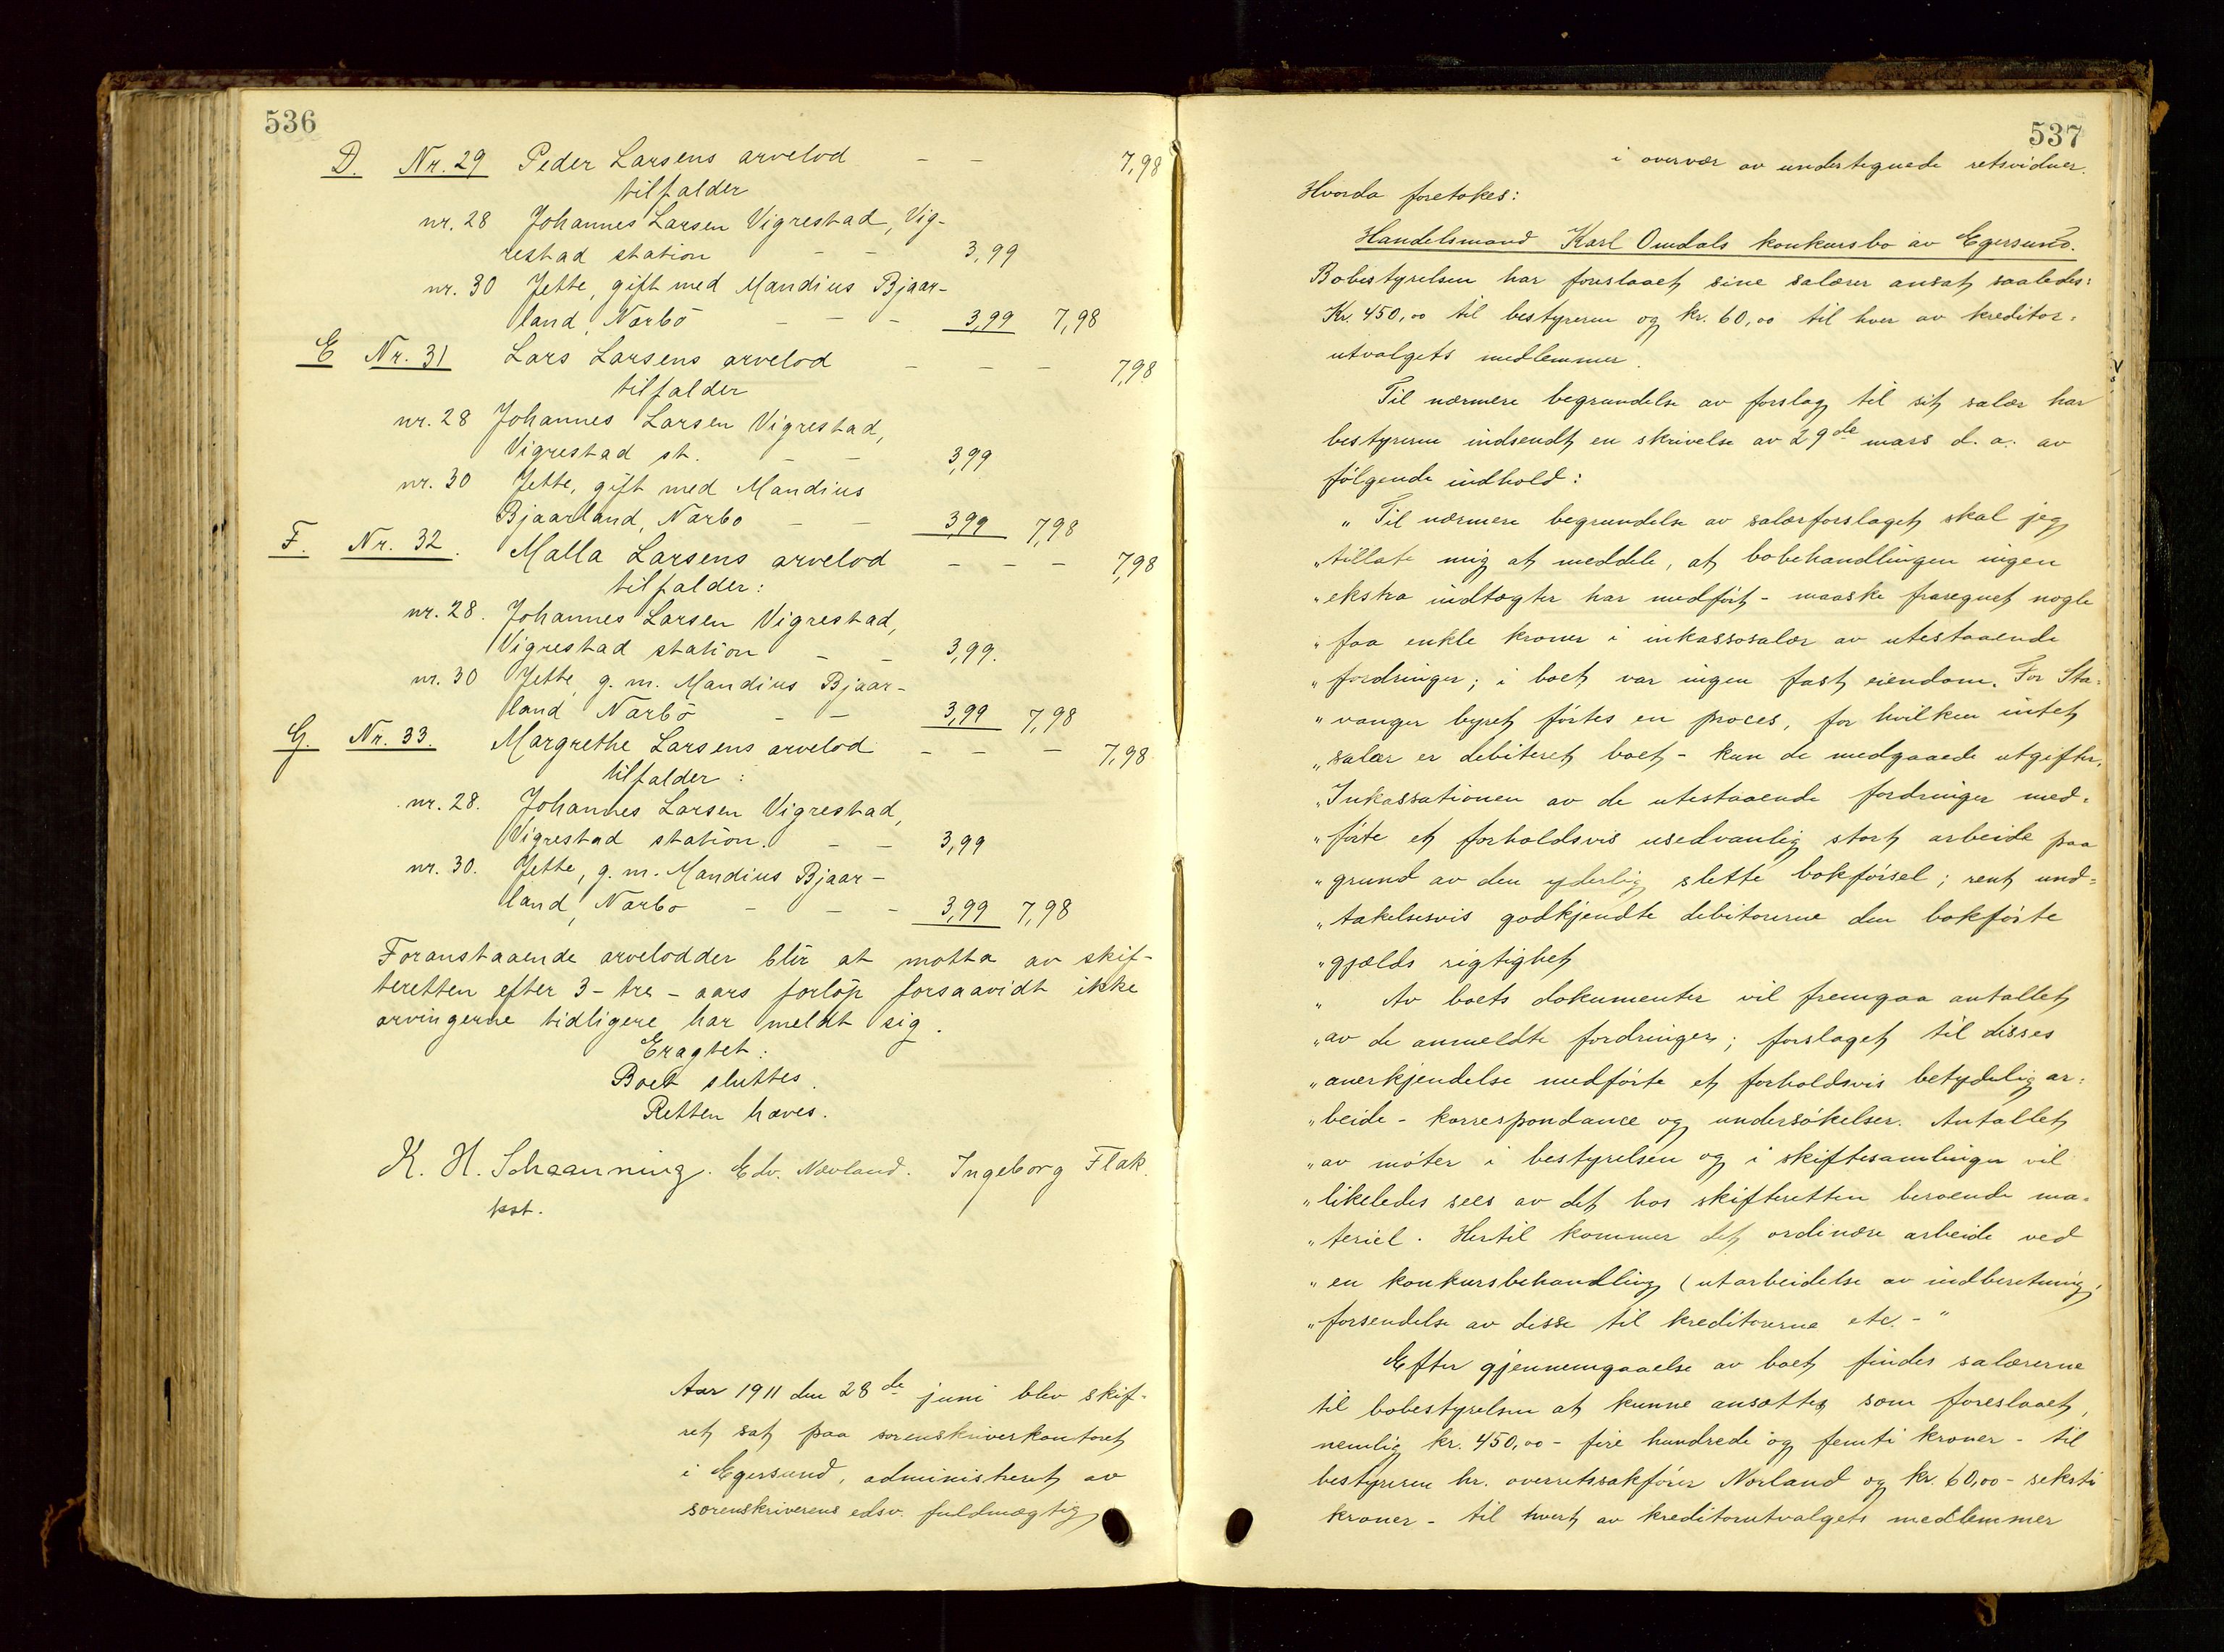 536
D. Nr. 29 Peder Larsens arvelod - - 7,98
tilfalder
nr. 28 Johannes Larsen Vigrestad, Vig-
restad station - - 3,99
nr. 30 Jette, gift med Mandius Bjaar-
land, Nærbö - - - 3,99 7,98
E Nr. 31 Lars Larsens arvelod - - - 7,98
tilfalder
nr. 28 Johannes Larsen Vigrestad,
Vigrestad st. - - 3,99
nr. 30 Jette, gift med Mandius
Bjaarland, Nærbo - - 3,99 7,98
F. Nr. 32. Malla Larsens arvelod - - - 7,98
tilfalder:
nr. 28. Johannes Larsen Vigrestad,
Vigrestad station - - 3,99.
nr. 30 Jette, g. m. Mandius Bjaar-
land Nærbö - - 3,99 7,98
G. Nr. 33. Margrethe Larsens arvelod - - - 7,98
tilfalder:
nr. 28. Johannes Larsen Vigrestad,
Vigrestad station. - - 3,99
nr. 30. Jette, g. m. Mandius Bjaar-
land, Nærbo - - - 3,99 7,98
Foranstaaende arvelodder blir at motta av skif-
teretten efter 3 - tre - aars forlöp forsaavidt ikke
arvingerne tidligere har meldt sig.
Eragtet:
Boet sluttes.
Retten hæves.
K. H. Schaanning. Edv. Nevland. Ingeborg Flak.
kst.
Aar 1911 den 28de juni blev skif-
ret sat paa sorenskriverkontoret
i Egersund, administreret av
sorenskriverens edsv. fuldmægtig
537
i overvær av undertegnede retsvidner.
Hvorda foretokes:
Handelsmand Karl Omdals konkursbo av Egersund.
Bobestyrelsen har foreslaaet sine salærer ansat saaledes:
Kr. 450,00 til bestyreren og kr. 60,00 til hver av kreditor-
utvalgets medlemmer.
Til nærmere begrundelse av forslag til sit salær har
bestyreren indsendt en skrivelse av 29de mars d. a. av
følgende indhold:
" Til nærmere begrundelse av salærforslaget skal jeg
"tillate mig at meddele, at bobehandlingen ingen
"ekstra indtægter har medført - maaske fraregnet nogle
"faa enkle kroner i inkassosalær av utestaaende
"fordringer; i boet var ingen fast eiendom. For Sta-
"vanger byret førtes en proces, for hvilken intet
"salær er debiteret boet - kun de medgaaede utgifter.
"Inkassationen av de utestaaende fordringer med-
"førte et forholdsvis usedvanlig stort arbeide paa
"grund av den yderlig slette bokførsel; rent und-
"takelsesvis godkjendte debitorerne den bokførte
"gjælds rigtighet
" Av boets dokumenter vil fremgaa antallet
"av de anmeldte fordringer; forslaget til disses
"anerkjendelse medførte et forholdsvis betydelig ar-
"beide - korrespondance og undersökelser. Antallet
"av møter i bestyrelsen og i skiftesamlinger vil
"likeledes sees av det hos skifteretten beroende ma-
"teriel. Hertil kommer det ordinære arbeide ved
"en konkursbehandling (utarbeidelse av indberetning,
"forsendelse av disse til kreditorerne etc. - "
Efter gjennemgaaelse av boet findes salærerne
til bobestyrelsen at kunne ansættes som foreslaaet,
nemlig kr. 450,00 - fire hundrede og femti kroner - til
bestyreren hr. overretssakfører Nevland og kr. 60,00 - seksti
kroner - til hvert av kreditorutvalgets medlemmer